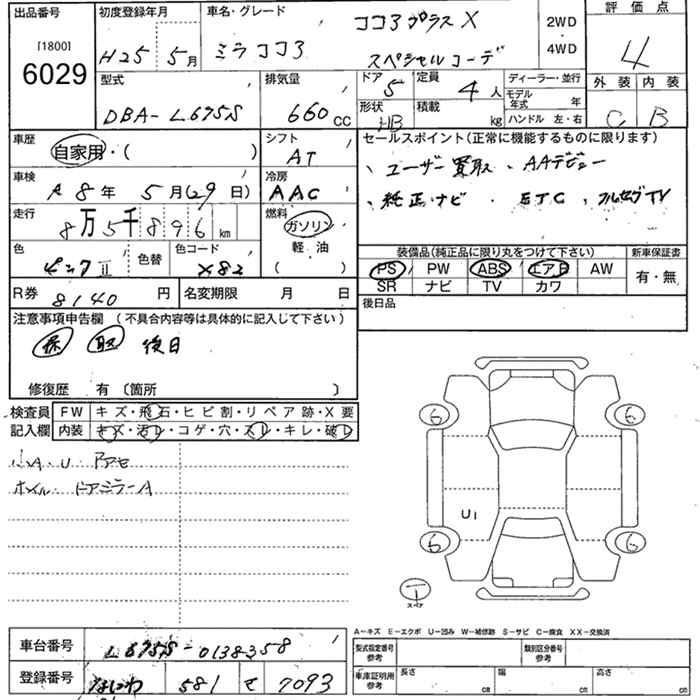 出品番号
[1800]
6029
初度登録年月
H25 5月
車名・グレード
ココアプラス X
ミラココア
スペシャルコーデ
2WD
・
4WD
評価点
4
外装 内装
C B
型式
DBA- L675S
排気量
660 cc
ドア
5
定員
4人
形状
HB
積載
kg
ディーラー・並行
モデル年式 年
ハンドル 左・右
車歴
自家用・( )
シフト
AT
車検
R8年 5月(29日)
冷房
AAC
走行
8万5千896km
燃料
ガソリン
軽・油
( )
色
ピンクⅡ
色替
色コード
X82
セールスポイント(正常に機能するものに限ります)
、ユーザー買取 、AAデビュー
、純正ナビ ・ ETC 、フルセグTV
装備品(純正品に限り丸をつけて下さい)
新車保証書
PS PW ABS エアB AW
SR ナビ TV カワ
有・無
R券 8140円
名変期限 月 日
後日品
注意事項申告欄 (不具合内容等は具体的に記入して下さい)
保 取 後日
修復歴 有〔箇所 〕
検査員記入欄
FW キズ・飛石・ヒビ割・リペア跡・X要
内装 キズ・汚レ・コゲ・穴・スレ・キレ・破レ
小A・U
ドアミラーA
6 6
U1
6 6
T
スペア
A−キズ E−エクボ U−凹み W−補修跡 S−サビ C−腐食 XX−交換済
車台番号
L675S-0138358
登録番号
なにわ 581 せ 7093
型式指定番号
参考
類別区分番号
参考
車庫証明用
参考
長さ cm
幅 cm
高さ cm